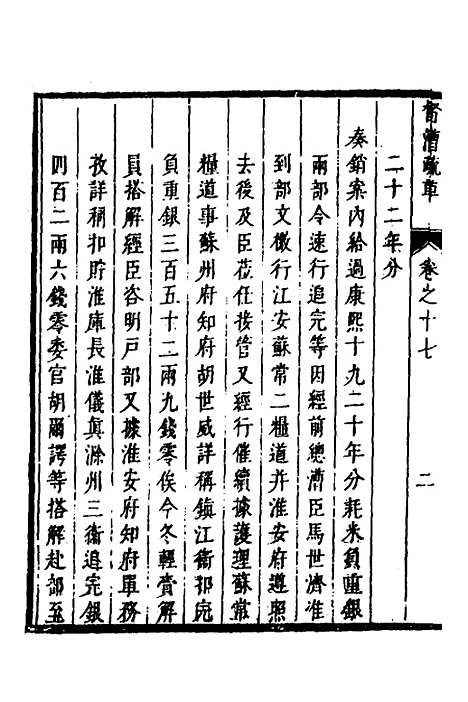 督漕疏草
卷之十七
二
二十二年分
奏銷案內給過康熙十九二十年分耗米負重銀
兩部令速行追完等因經前總漕臣馬世濟准
到部文檄行江安蘇常二糧道并淮安府遵照
去後及臣蒞任接管又經行催續據護理蘇常
糧道事蘇州府知府胡世威詳稱鎮江衞扣完
負重銀三百五十二兩九錢零俟今冬輕賫解
員搭解經臣咨明戶部又據淮安府知府單務
孜詳稱扣貯淮庫長淮儀眞滁州三衞追完銀
四百二兩六錢零委官胡爾諤等搭解赴部至